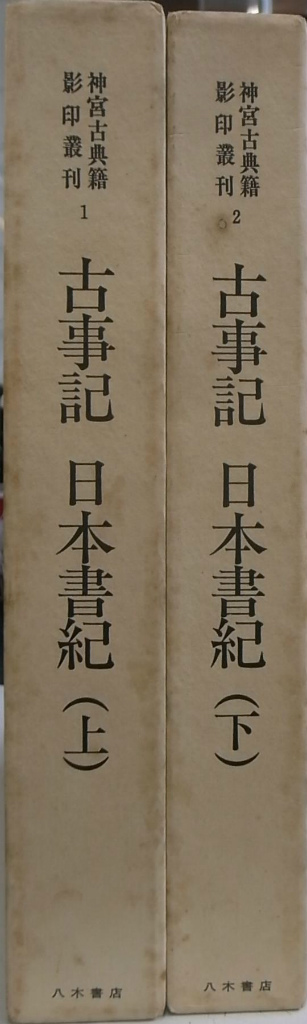 神宮古典籍
影印叢刊
1
古事記 日本書紀(上)
八木書店
神宮古典籍
影印叢刊
2
古事記 日本書紀(下)
八木書店